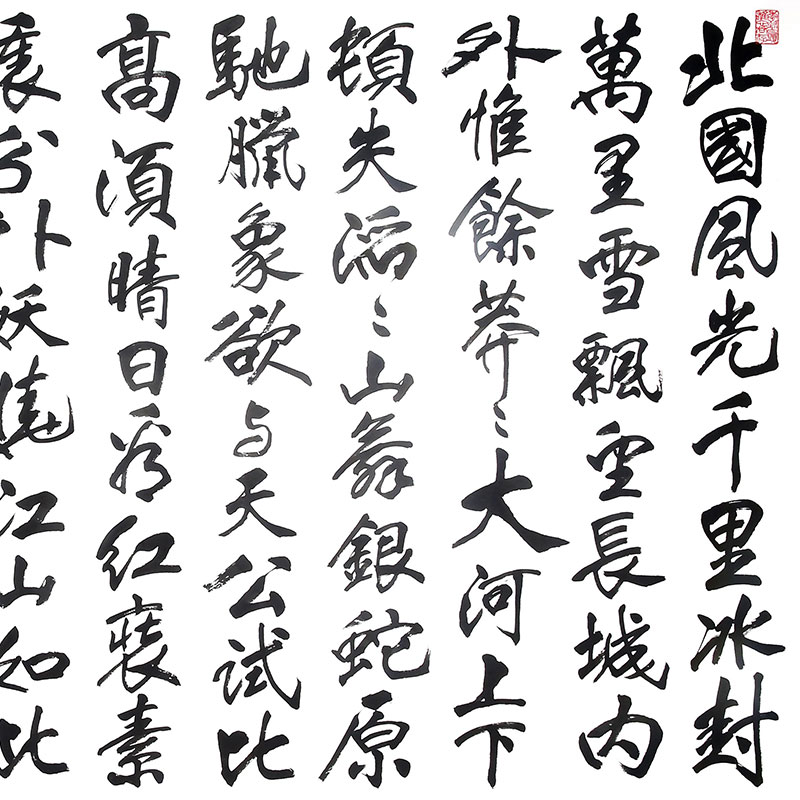 北國風光千里冰封
萬里雪飄望長城內
外惟餘莽〻大河上下
頓失滔〻山舞銀蛇原
馳臘象欲与天公試比
高須晴日看紅裝素
裹分外妖嬈江山如此